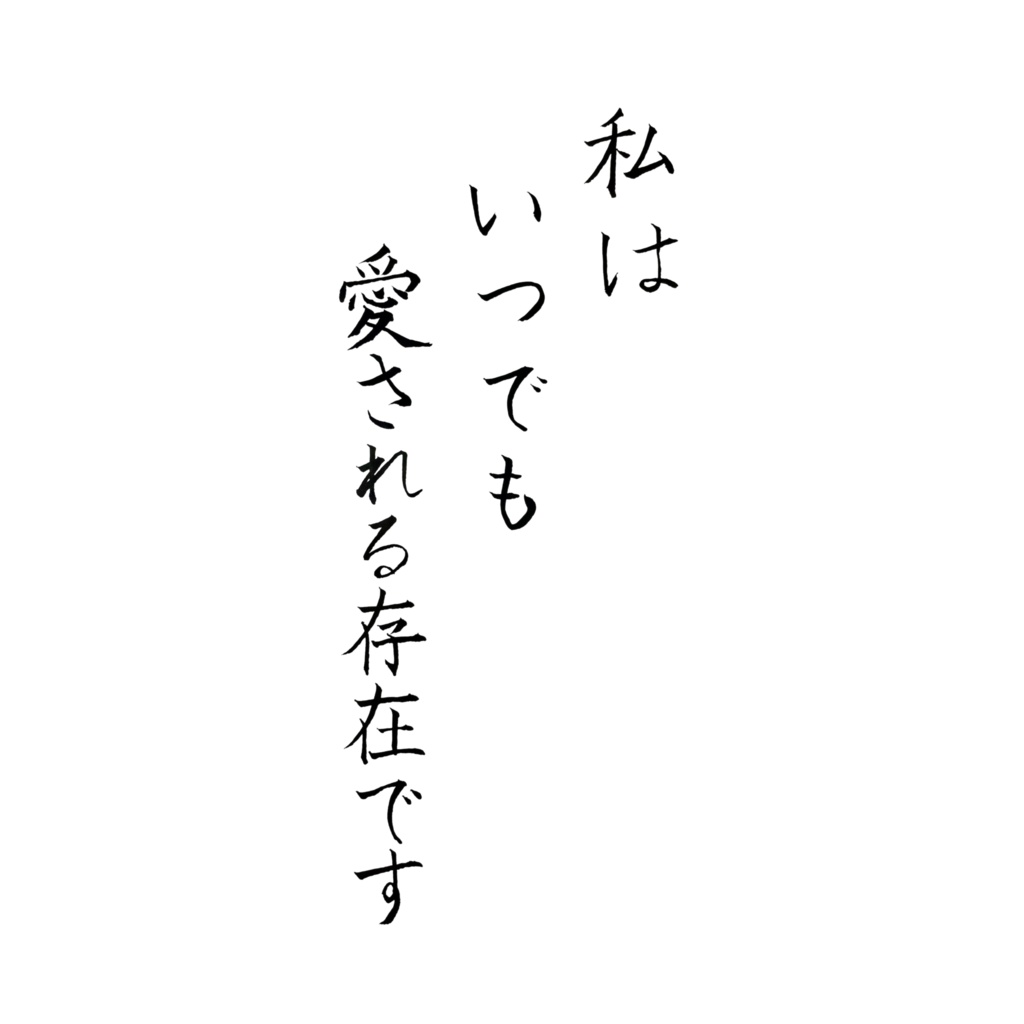 私は
いつでも
愛される存在です